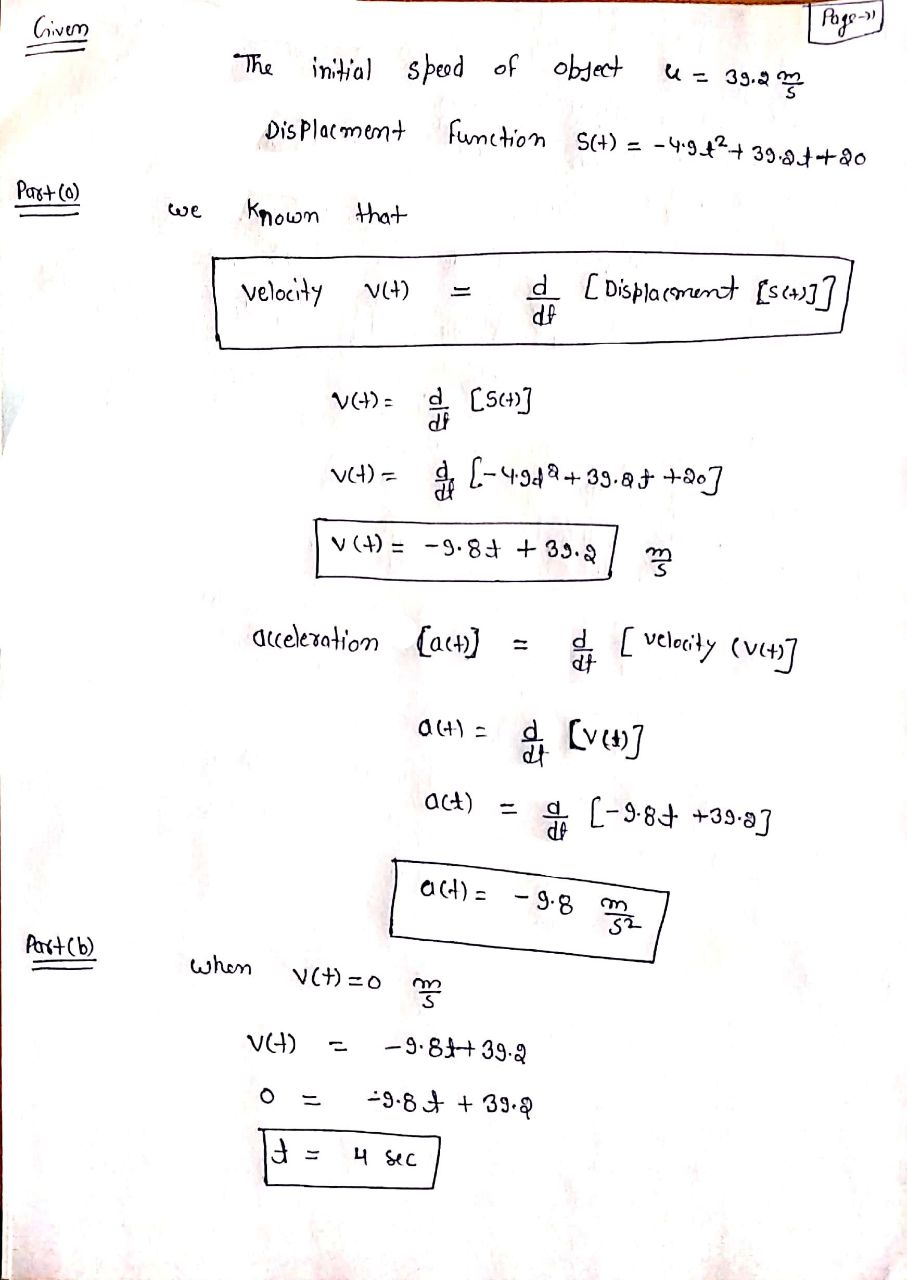 Given
Page-1)
The initial speed of object u = 39.2 m/s
Displacment function S(t) = -4.9t² + 39.2t + 20
Part (a)
we known that
velocity v(t) = d/dt [Displacment [s(t)]]
v(t) = d/dt [S(t)]
v(t) = d/dt [-4.9t² + 39.2t + 20]
v(t) = -9.8t + 39.2 m/s
acceleration [a(t)] = d/dt [velocity (v(t)]
a(t) = d/dt [v(t)]
a(t) = d/dt [-9.8t + 39.2]
a(t) = -9.8 m/s²
Part (b)
when v(t) = 0 m/s
v(t) = -9.8t + 39.2
0 = -9.8t + 39.2
t = 4 sec